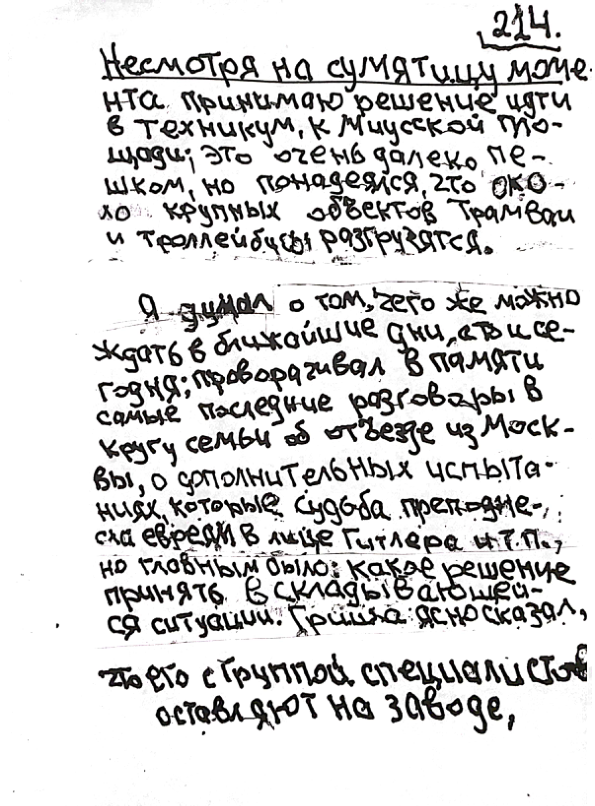 214.
Несмотря на сумятицу моме-
нта принимаю решение идти
в техникум, к Миусской пло-
щади; это очень далеко пе-
шком, но понадеялся, что око-
ло крупных объектов трамваи
и троллейбусы разгрузятся.
Я думал о том, чего же можно
ждать в ближайшие дни, а то и се-
годня; проворачивал в памяти
самые последние разговоры в
кругу семьи об отъезде из Моск-
вы, о дополнительных испыта-
ниях, которые судьба преподне-
сла евреям в лице Гитлера и т.п.,
но главным было: какое решение
принять в складывающей-
ся ситуации. Гришка ясно сказал,
что его с группой специалистов
оставляют на заводе,